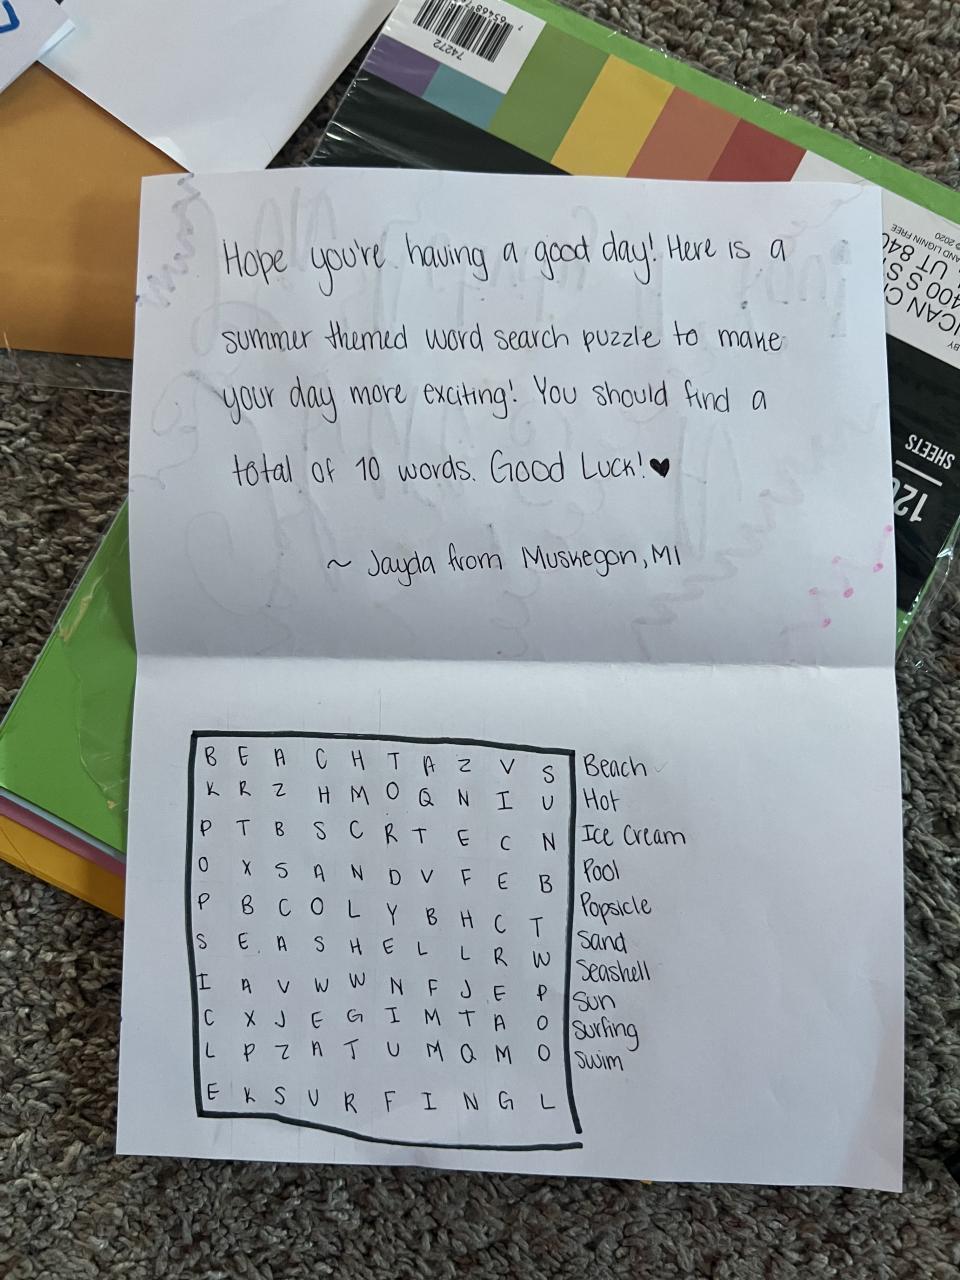 74272
Hope you're having a good day! Here is a
summer themed word search puzzle to make
your day more exciting! You should find a
total of 10 words. Good Luck! ♥
~ Jayda from Muskegon, MI
B E A C H T A Z V S
K R Z H M O Q N I U
P T B S C R T E C N
O X S A N D V F E B
P B C O L Y B H C T
S E A S H E L L R W
I A V W W N F J E P
C X J E G I M T A O
L P Z A T U M Q M O
E K S U R F I N G L
Beach
Hot
Ice Cream
Pool
Popsicle
Sand
Seashell
Sun
Surfing
Swim
SHEETS
© 2020
UT 840
400 S